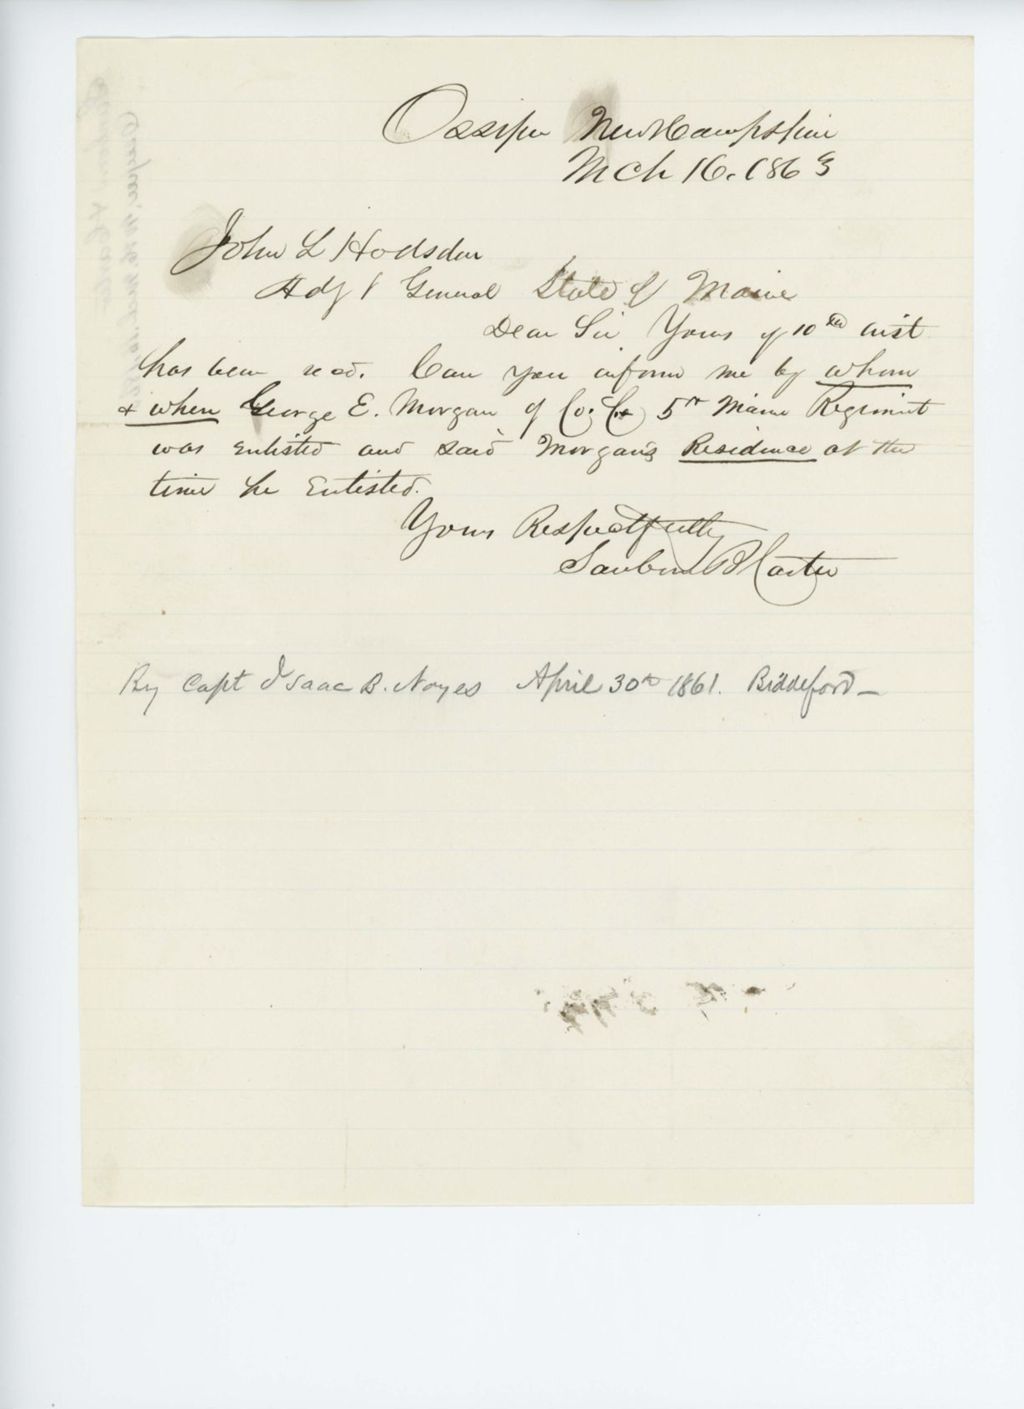 Ossipee New Hampshire
Mch 16. 1863
John L Hodsdon
Adj't General State of Maine
Dear Sir Yours of 10th inst
has been recd. Can you inform me by whom
& when George E. Morgan of Co. 5th Maine Regiment
was enlisted and said Morgan's Residence at the
time he Enlisted.
Yours Respectfully
Sanborn B Carter
By Capt Isaac B. Noyes April 30th 1861. Biddeford—